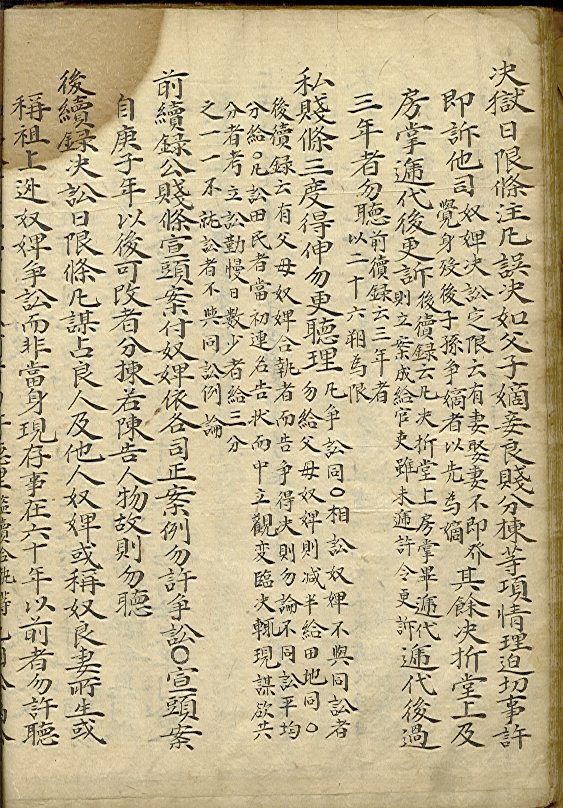 决獄日限條注凡誤决如父子嫡妾良賤分揀等項情理迫切事許
即訴他司奴婢决訟定限云有妻娶妻不即
覺身歿後子孫争嫡者以先為嫡其餘决折堂上及
房掌遞代後更訴後續錄云凡决折堂上房掌畢遞代
則立案成給官吏雖未遞許令更訴遞代後過
三年者勿聽前續錄云三年者
以二十六朔為限
私賤條三度得伸勿更聽理凡争訟同○相訟奴婢不與同訟者
勿給父母奴婢則减半給田地同○
後續錄云有父母奴婢合執者而告争得决則勿論不同訟平均
分給○凡訟田民者當初連名告狀而中立觀変臨决輒現謀欲共
分者考立訟勤慢日數少者給三分
之一一不就訟者不與同訟例論
前續錄公賤條宣頭案付奴婢依各司正案例勿許争訟○宣頭案
自庚子年以後可改者分揀若陳告人物故則勿聽
後續錄决訟日限條凡謀占良人及他人奴婢或稱奴良妻所生或
稱祖上逃奴婢争訟而非當身現存事在六十年以前者勿許聽